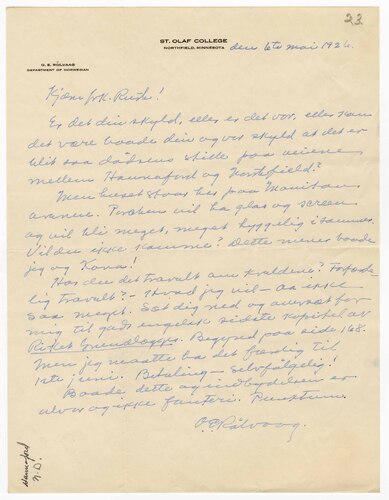 23
ST. OLAF COLLEGE
NORTHFIELD, MINNESOTA
O. E. RÖLVAAG
DEPARTMENT OF NORWEGIAN
den 6te mai 1926.
Kjære frk. Rud!
Er det din skyld, elles er det vor, elles kan
det være baade din og vor skyld at det er
blit saa dødsens stille paa veiene
mellem Hannaford og Northfield?
Men huset staar her paa Manitou
avenue. Porchen vil ha glas og screen
og vil bli meget, meget hyggelig i sommer.
Vil du ikke komme? Dette mener baade
jeg og Kona!
Har du det travalt om kveldene?
lig travalt? – Hvad jeg vil – aa ikke
saa meget. Sæt dig ned og oversæt for
mig til godt engelsk sidste kapitel av
Riket Grundlægges. Begynd paa side 168.
Men jeg maatte ha det færdig til
1ste juni. Betaling – Selvfølgelig!
Baade dette og indbydelsen er
alvor og ikke fanteri. Punktum.
O E Rölvaag.
Hannaford
N.D.